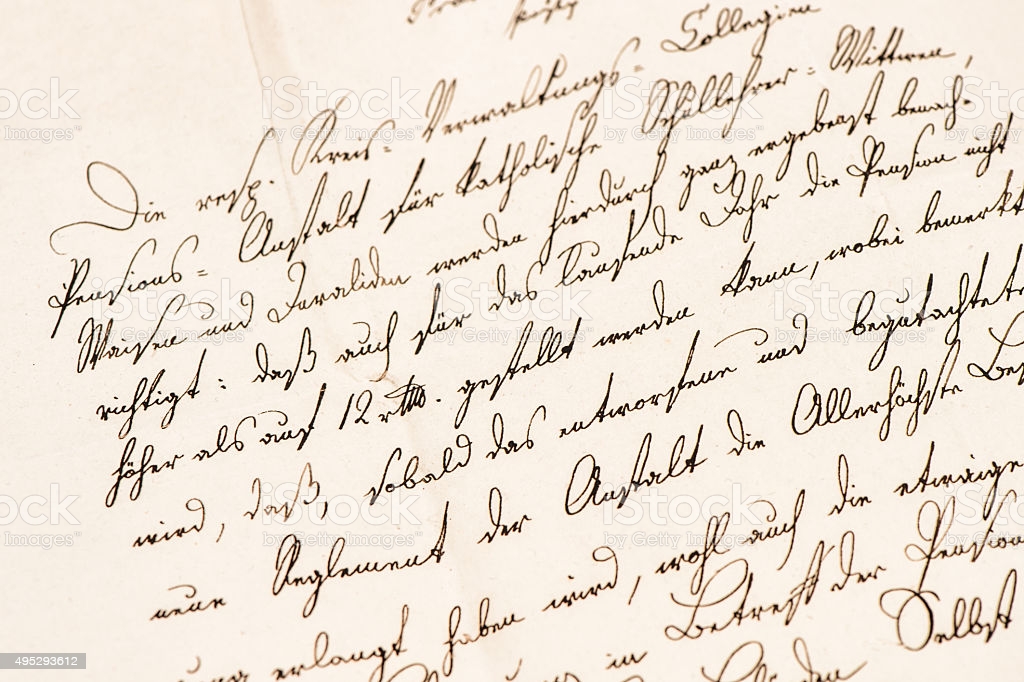 Die resp. Kreis= Verwaltungs= Collegien
Pensions= Anstalt für katholische Schullehrer= Wittwen,
Waisen und Invaliden werden hierdurch ganz ergebenst benach-
richtigt: daß auch für das laufende Jahr die Pension nicht
höher als auf 12 rthlr. gestellt werden kann, wobei bemerkt
wird, daß, sobald das entworfene und begutachtete
neue Reglement der Anstalt die Allerhöchste Bes
erlangt haben wird, wohl auch die etwaige
in Betreff der Pension
Selbst
iStock
by Getty Images™
495293612